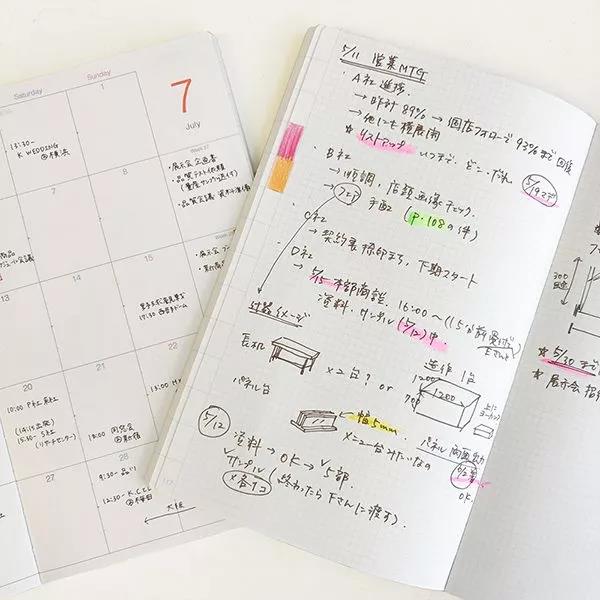 Saturday
Sunday
7
July
1
13:30-
K WEDDING
@横浜
Week 27
・展示会 企画書
・品質テスト依頼
・品質会議 資料準備
7
8
14
15
13
21
22
17:30
20
10:00
(14:15出発)
15:30-
19:00 同窓会
13:00
27
28
9:30-
12:30-
大阪
5/11 営業MTG
・A社 進捗.
→ 昨対 89% → 個店フォローで 93%まで 回復
→ 他にも横展開
★ リストアップ いつまで、どこ・だれ
5/19マデ
・B社
→ 順調. 店頭画像チェック.
→ フェア 手配 (P.108の件)
・C社
→ 契約表待ち、下期スタート
・D社
→ 5/15 本部商談. 16:00〜(15分前
資料・サンプル (5/12)中
什器イメージ
長机
×2台? or
造作 1台
1200
700
1200
パネル台
幅5mm
×2台みたいなの
パネル 両面
OK.
5/12
資料 → OK → 5部
サンプル (終わったら 下さんに渡す).
×各1コ
300
★ 5/30 まで
・展示会